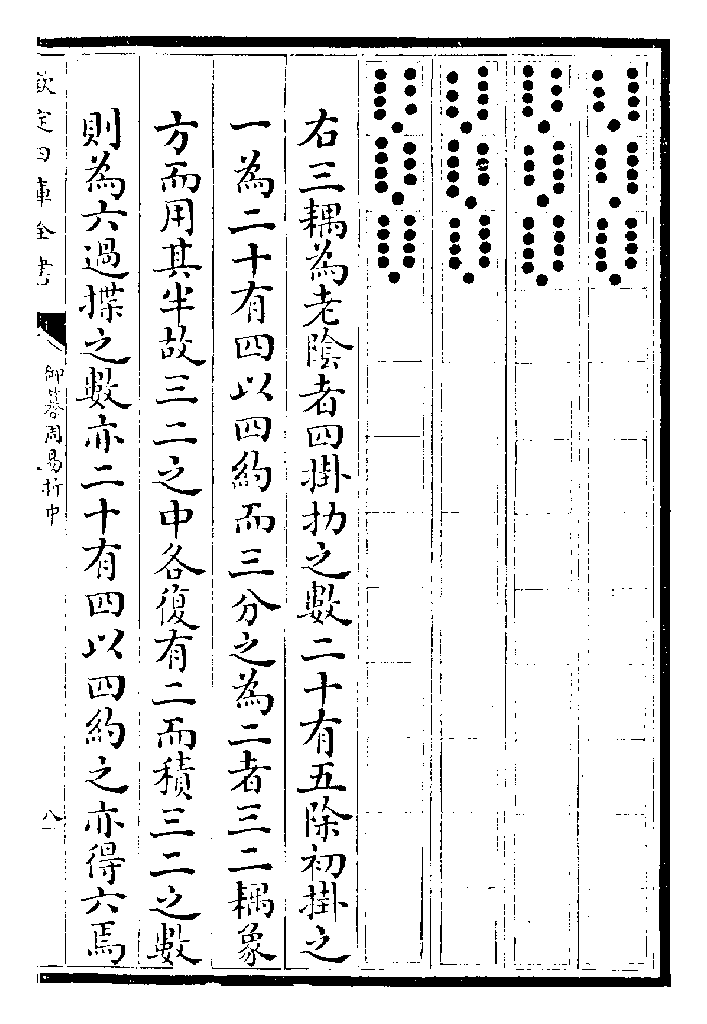 右三耦為老陰者四掛扐之數二十有五除初掛之
一為二十有四以四約而三分之為二者三二耦象
方而用其半故三二之中各復有二而積三二之數
則為六過揲之數亦二十有四以四約之亦得六焉
欽定四庫全書
御纂周易折中
八